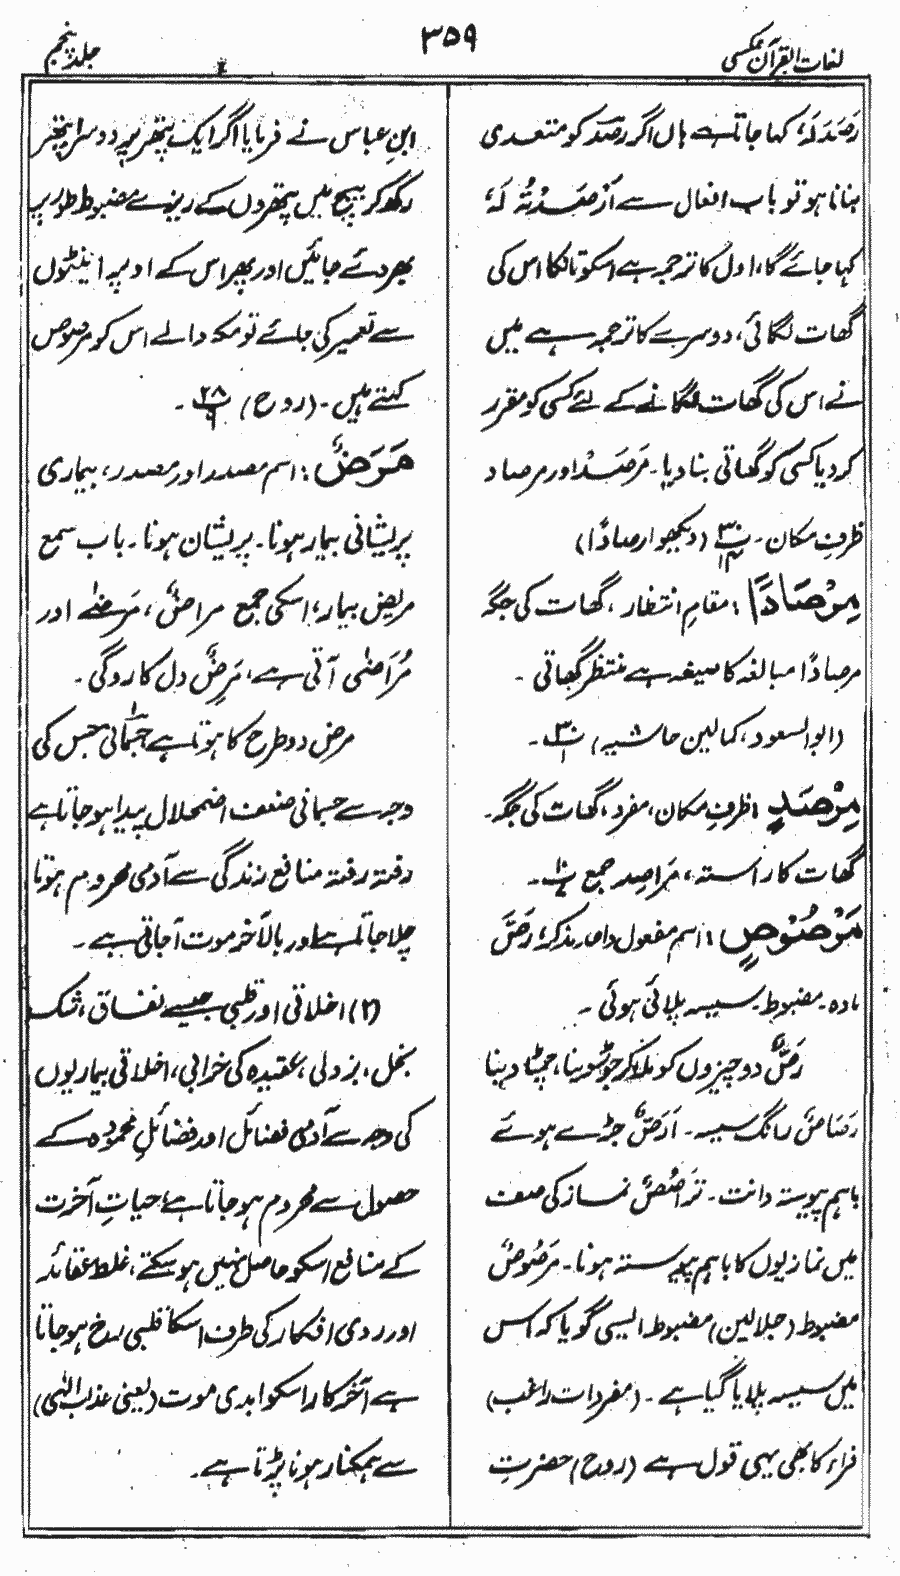 لغات القرآن عکسی
۳۵۹
جلد پنجم
رَصَدَ لَہٗ، کہا جاتا ہے ہاں اگر رصد کو متعدی
بنانا ہو تو باب افعال سے اَرْصَدْتُہٗ لَہٗ
کہا جائے گا، اول کا ترجمہ ہے اسکو تاکا اس کی
گھات لگائی، دوسرے کا ترجمہ ہے میں
نے اس کی گھات لگانے کے لئے کسی کو مقرر
کردیا کسی کو گھاتی بنا دیا۔ مَرصَدْ اور مرصاد
ظرفِ مکان۔ (دیکھو ارصادًا)
مِرْصَادًا: مقامِ انتظار، گھات کی جگہ
مرصادًا مبالغہ کا صیغہ ہے منتظر گھاتی۔
(ابوالسعود، کمالین حاشیہ) ۳۰/۱۔
مِرْصَدٍ: ظرفِ مکان، مفرد، گھات کی جگہ۔
گھات کا راستہ، مَراصِد جمع ۱۰۔
مَرْصُوْصٍ: اسم مفعول واحد مذکر، رَصَّ
مادہ۔ مضبوط۔ سیسہ پلائی ہوئی۔
رَصَّ دو چیزوں کو ملا کر جوڑ دینا، چمٹا دینا
رَصَاصٌ رانگ سیسہ۔ اَرَصُّ جڑے ہوئے
باہم پیوستہ دانت۔ تَرَاصُصٌ نماز کی صف
میں نمازیوں کا باہم پیوستہ ہونا۔ مَرصُوصٌ
مضبوط (جلالین) مضبوط ایسی گویا کہ اس
میں سیسہ پلایا گیا ہے۔ (مفردات راغب)
فراء کا بھی یہی قول ہے (روح) حضرتِ
ابنِ عباس نے فرمایا اگر ایک پتھر پر دوسرا پتھر
رکھ کر بیچ میں پتھروں کے ریزے مضبوط طور پر
بھر دئے جائیں اور پھر اس کے اوپر اینٹوں
سے تعمیر کی جائے تو مکہ والے اس کو مرصوص
کہتے ہیں۔ (روح) ۲۸/۹۔
مَرَضٌ: اسم مصدر اور مصدر، بیماری
پریشانی بیمار ہونا۔ پریشان ہونا۔ باب سمع
مریض بیمار، اسکی جمع مراضٌ، مَرضیٰ اور
مُرَاضیٰ آتی ہے، مَرِضٌ دل کا روگی۔
مرض دو طرح کا ہوتا ہے ۱ جسمانی جس کی
وجہ سے جسمانی ضعف اضمحلال پیدا ہو جاتا ہے
رفتہ رفتہ منافع زندگی سے آدمی محروم ہوتا
چلا جاتا ہے اور بالآخر موت آجاتی ہے۔
(۲) اخلاقی اور قلبی جیسے نفاق، شک
بخل، بزدلی، عقیدہ کی خرابی، اخلاقی بیماریوں
کی وجہ سے آدمی فضائل اور فضائلِ محمودہ کے
حصول سے محروم ہو جاتا ہے، حیاتِ آخرت
کے منافع اسکو حاصل نہیں ہو سکتے، غلط عقائد
اور ردی افکار کی طرف اسکا قلبی رخ ہو جاتا
ہے آخر کار اسکو ابدی موت (یعنی عذاب الٰہی)
سے ہمکنار ہونا پڑتا ہے۔